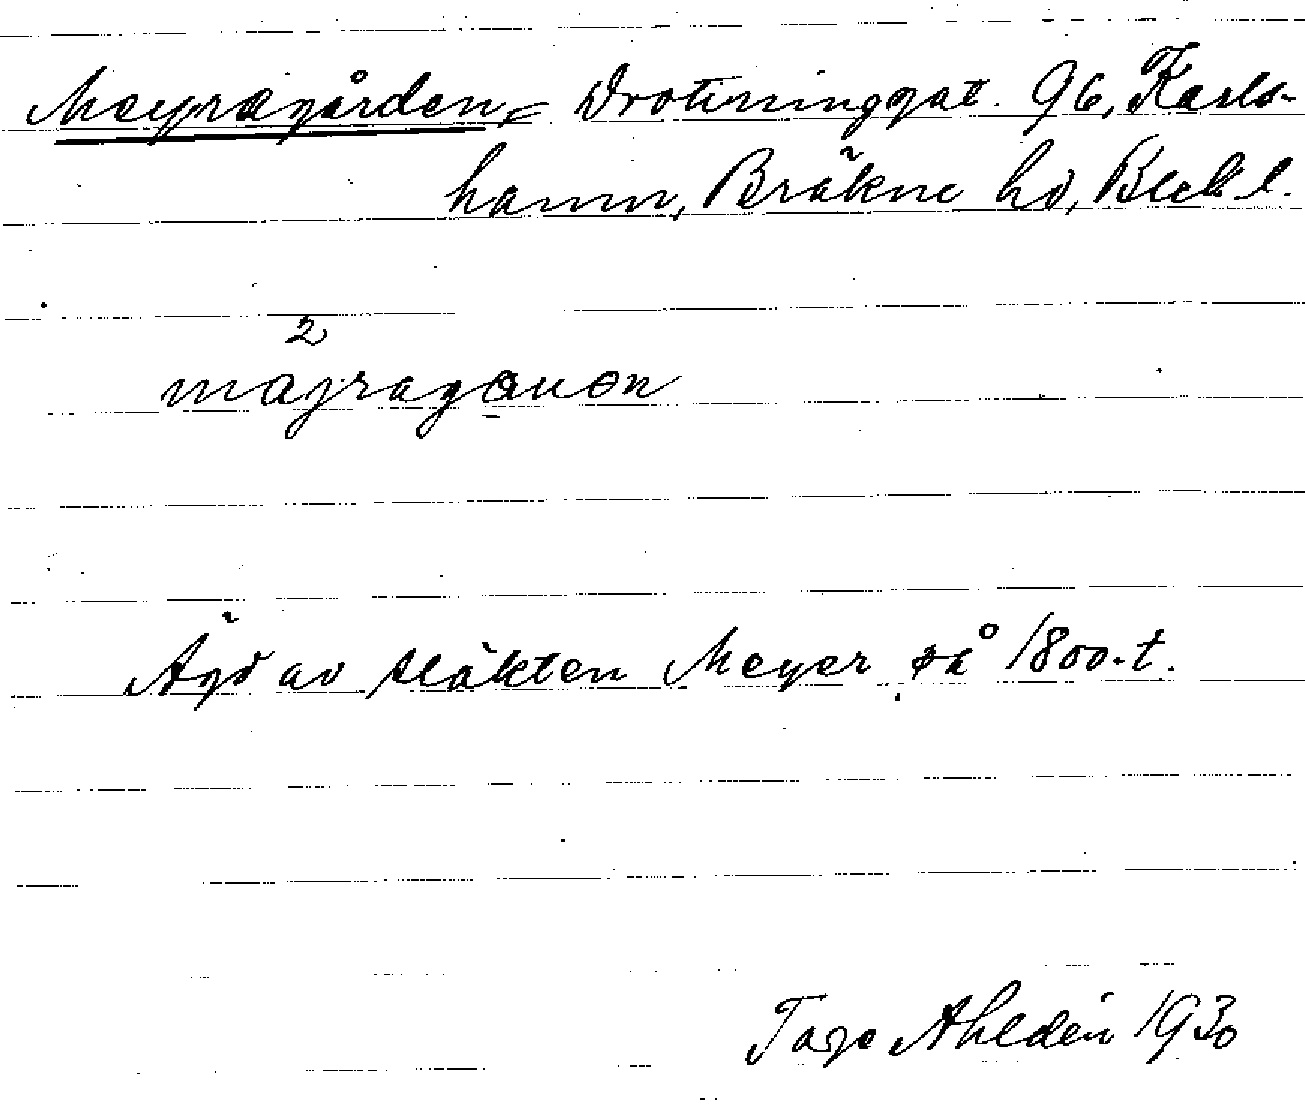 Meyragården, = Drottninggat. 96, Karls-
hamn, Bräkne hd, Blek l.
2
majragauon
Ägd av släkten Meyer på 1800-t.
Tage Ahldén 1930